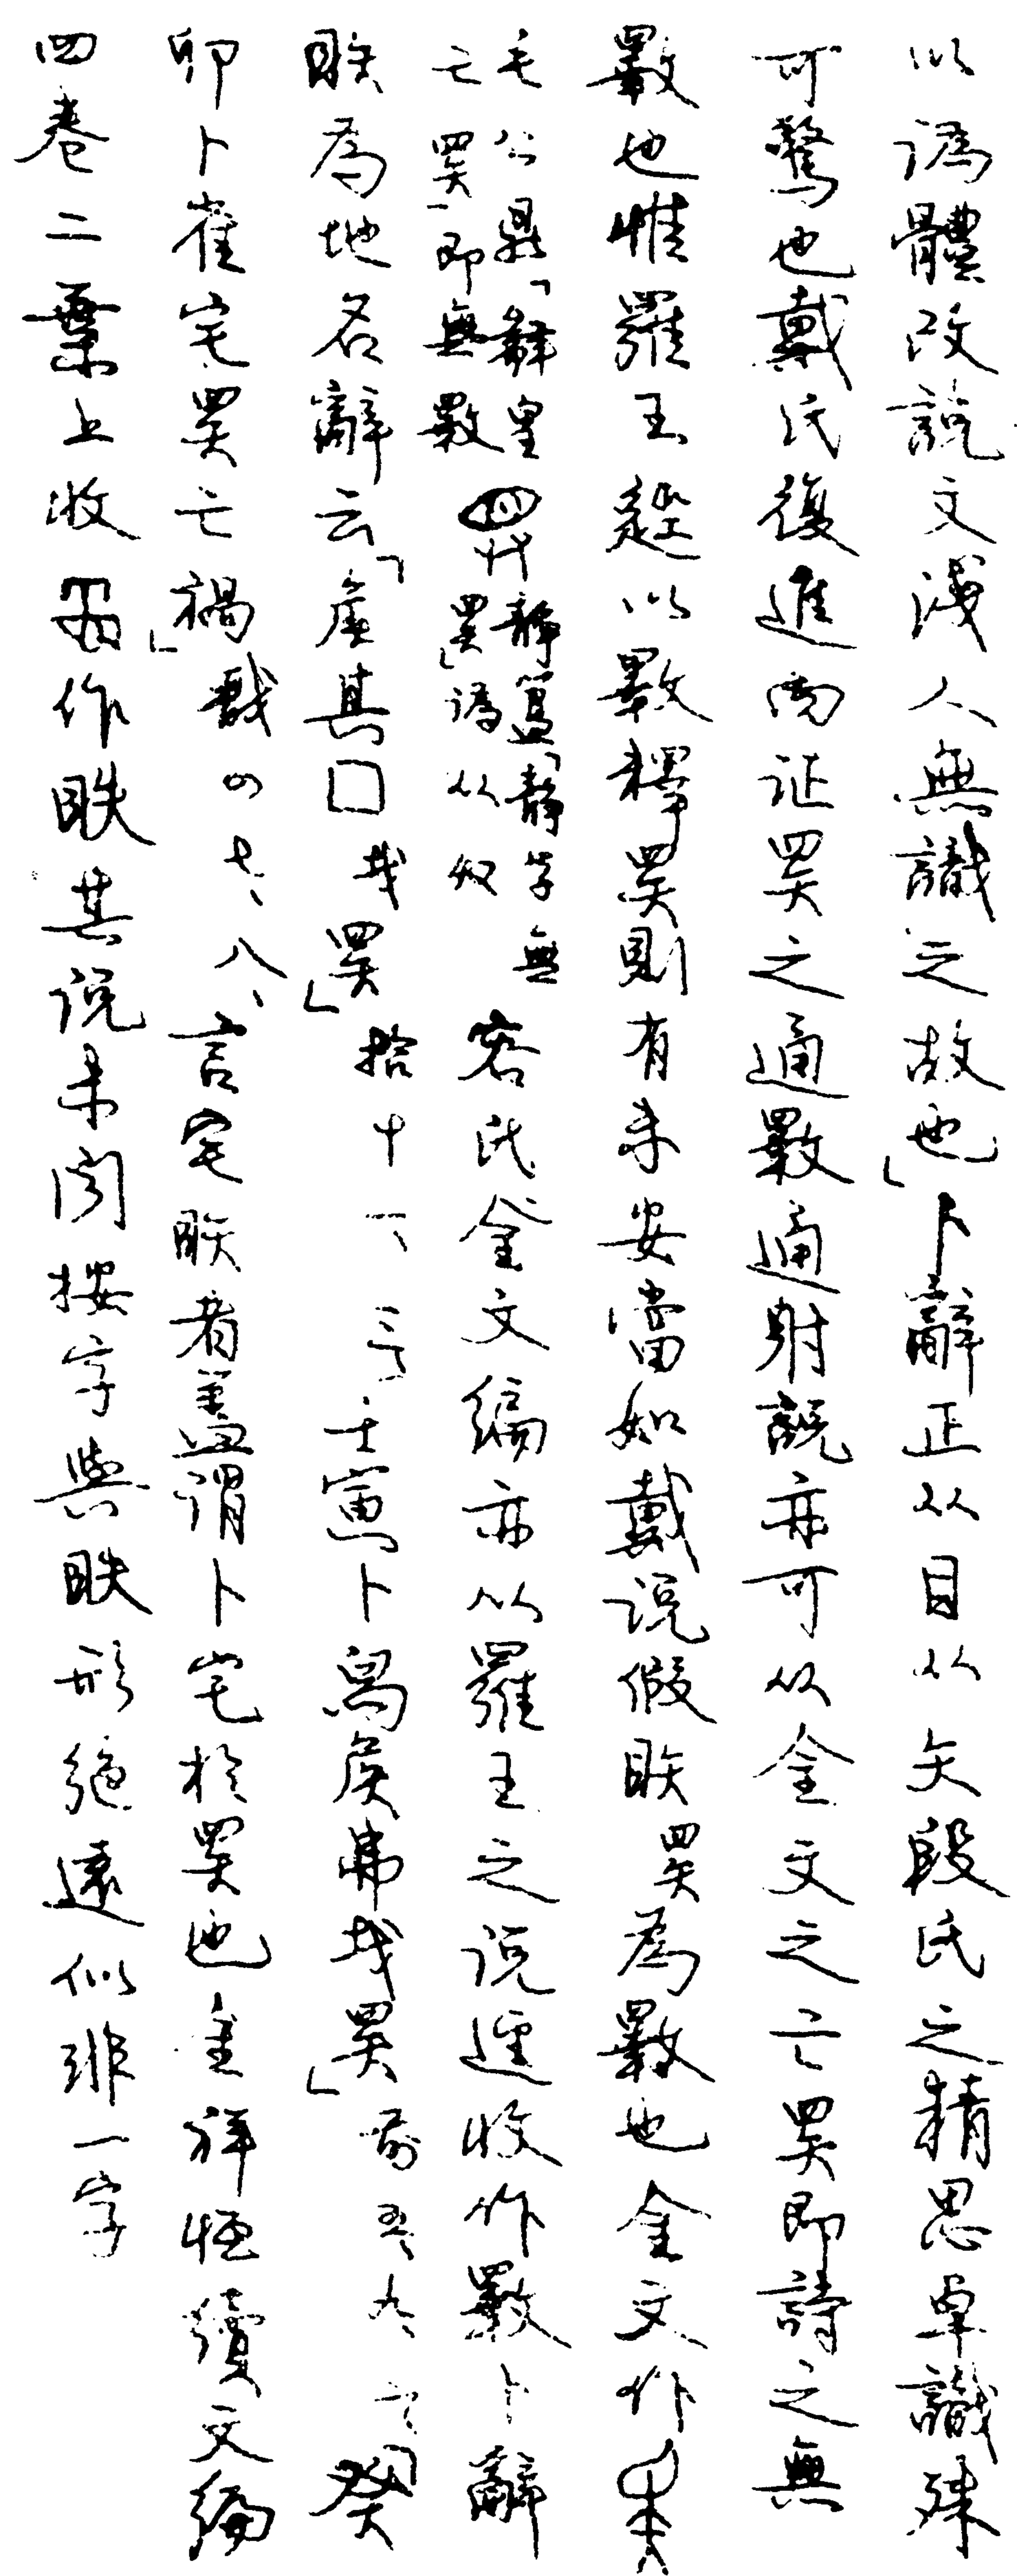 以譌體改說文淺人無識之故也」卜辭正从目从矢段氏之精思卓識殊
可驚也戴氏復進而証睪之通斁通射說亦可从金文之亡睪即詩之無
斁也惟羅王迳以斁釋睪則有未安當如戴說假眣睪為斁也金文作
毛公鼎「肆皇
亡睪」即無斁
靜簋「靜學無
睪」譌从奴
容氏金文編亦以羅王之說逕收作斁卜辭
眣為地名辭云「虘其囗𢦏睪」拾十一、三、「壬寅卜舄侯弗𢦏睪」前五、九、二、「癸
卯卜雀宅睪亡禍」戩四七、八、言宅眣者蓋謂卜宅於睪也金祥恆續文編
四卷二葉上收作眣其說未聞按字與眣形絕遠似非一字